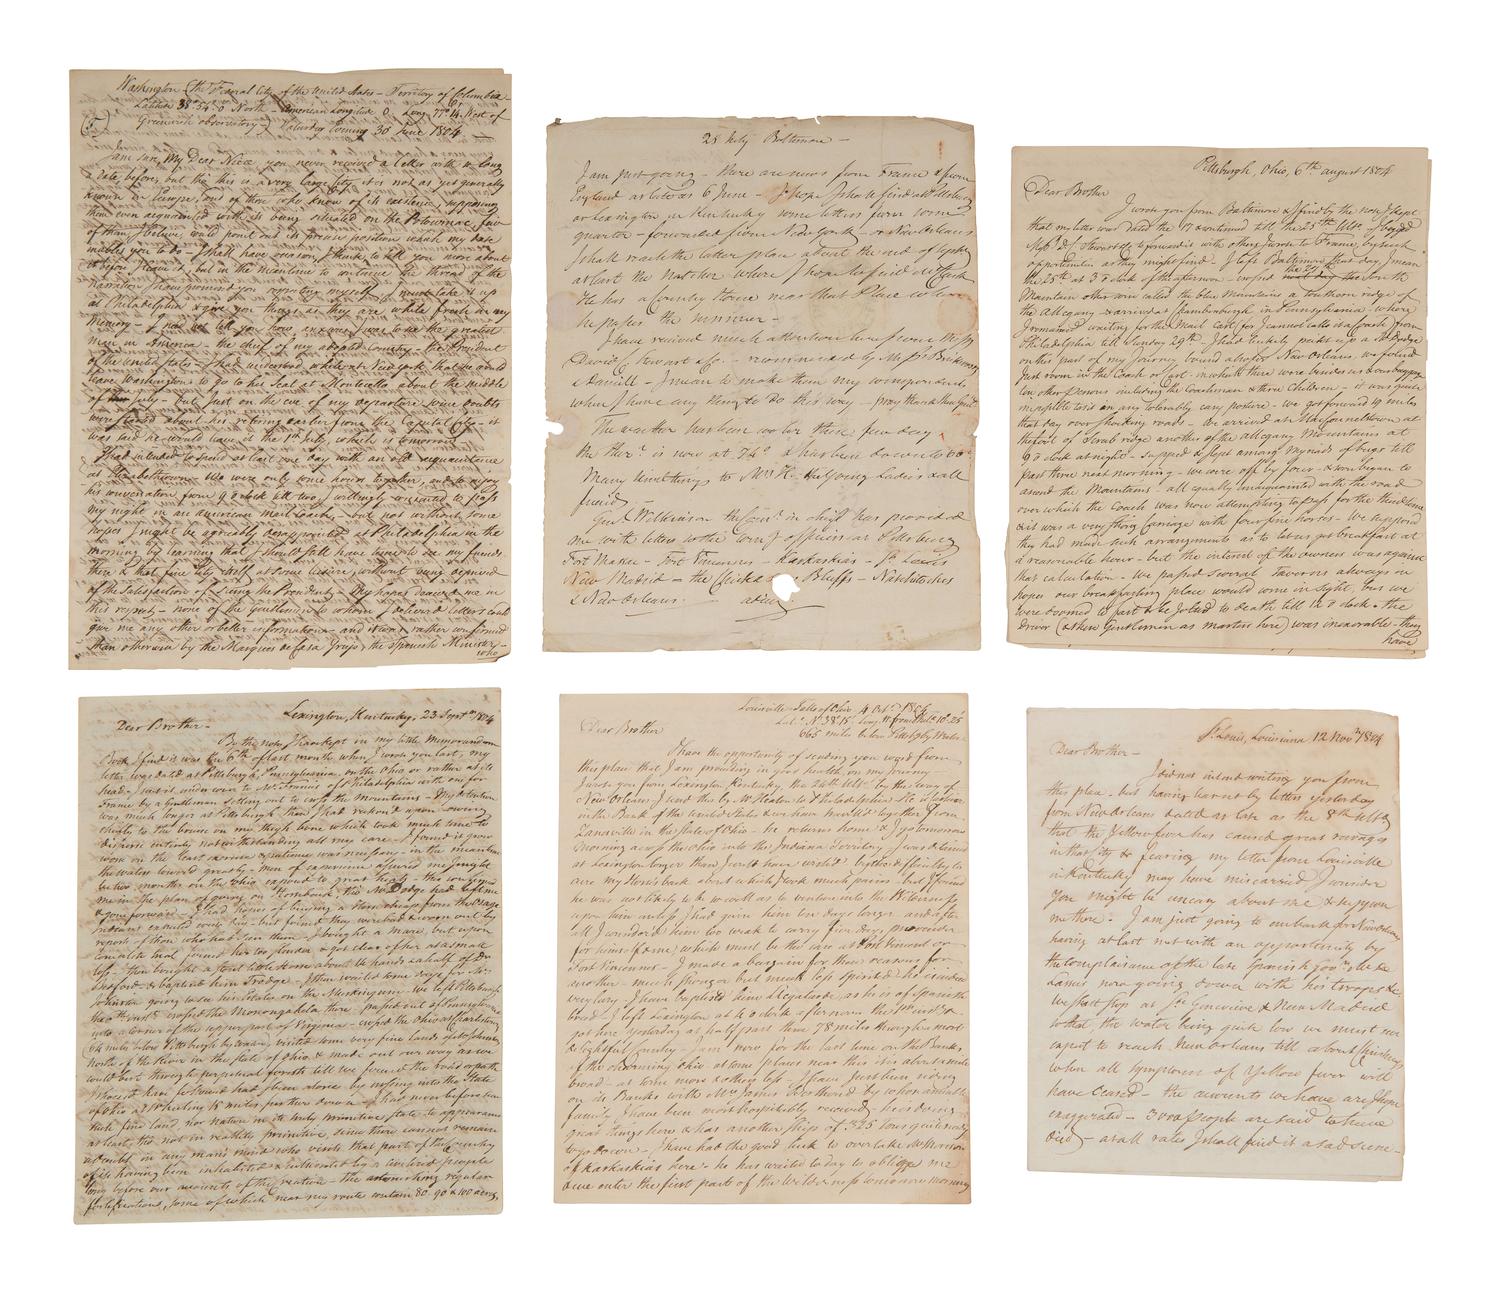 Washington (the Federal City of the United States – Territory of Columbia –
Latitude 38°.54'.0 North – American Longitude 0 Long. 77° 14 West of
Greenwich observatory) Saturday Evening 30 June 1804
I am sure, My Dear Niece you never received a letter with so long
a date before, but tho' this is a very large City it is not as yet generally
known in Europe, out of those who know of its existence, supposing
them even acquainted with its being situated on the Potowmac, few
of them I believe could point out its precise position which my date
enables you to do – I shall have occasion, I think to tell you more about
it before I leave it, but in the meantime to continue the thread of the
narration I have promised you
at Philadelphia & give you things as they are while fresh in my
Memory – I need not tell you how anxious I was to see the greatest
man in America – the chief of my adopted Country – the President
of the United States – I had understood while at New York that he would
leave Washington to go to his Seat at Montecello about the middle
of July – but just on the eve of my departure some doubts
were stated about his retiring earlier from the Capital City – it
was said he would leave it the 1st July, which is tomorrow
I had intended to spend at least one day with an old acquaintance
at Elizabethtown. We were only some hours together, and to enjoy
his conversation from 9 o'clock till two, I willingly consented to pass
my night in an American Mail Coach – but not without some
hopes I might be agreeably disappointed at Philadelphia in the
morning by learning that I should still have time to see my friends
there & that fine City itself at some leisure, without being deprived
of the Satisfaction of seeing the President – My hopes deceived me in
this respect – none of the Gentlemen to whom I delivered letters could
give me any other or better information – and it was rather confirmed
than otherwise by the Marquis de Casa Yrujo, the Spanish Minister –
who
28 July Baltimore –
I am just going – there are news from France & from
England as late as 6 June – I hope I shall find at Pittsburg
or Lexington in Kentucky some letters from some
quarter – forwarded from New York – or New Orleans
I shall reach the latter place about the end of Septr
at least the Natchez where I hope to find
He has a Country House near that Place where
he passes the summer –
I have received much attention here from Messrs
David Stewart & Co. – recommended by Messrs
– I mean to make them my correspondents
when I have any thing to do this way – pray thank them
The weather has been cooler these few days
the Therr. is now at 74° & has been down to 60
Many kind things to Mrs H. the Young Ladies & all
friends –
Genl Wilkinson the Comr in chief has provided
me with letters to the Comg officers at Pittsburg
Fort Massac – Fort Vincennes – Kaskaskias – St Louis
New Madrid – the Chickasaw Bluffs – Natchitoches
& New Orleans – adieu
Pittsburgh, Ohio, 6th august 1804
Dear Brother
I wrote you from Baltimore & find by the note I kept
that my letter was dated the 17 & continued till the 25th Ulto. I begged
Messrs D. Stewart & Co to forward it with others I wrote to France, by such
opportunities as they might find – I left Baltimore that day, I mean
the 25th at 3 o'clock afternoon – crossed the South
Mountain otherwise called the blue Mountains a Southern ridge of
the Allegany – & arrived at Chambersburgh in Pensylvania – where
I remained waiting for the mail Cart (for I cannot call it a Coach) from
Philadelphia till Sunday 29th. I had luckily picked up a Mr Dodge
on this part of my Journey bound also for New Orleans. we found
Just room in the Coach or Cart – in which there were besides us & our baggage
ten other persons including the Coachman & three Children – it was quite
impossible to sit in any tolerably easy posture – We got forward 19 miles
that day over shocking roads – We arrived at McConnelstown at
the foot of Scrub ridge another of the Allegany Mountains at
9 o'clock at night – supped & slept among Myriads of bugs till
past three next morning – We were off by four – & soon began to
ascend the Mountains – all equally unacquainted with the road
over which the Coach was now attempting to pass for the third time
& it was a very strong Carriage with four fine horses – We supposed
they had made such arrangements as to let us get breakfast at
a reasonable hour – but the interest of the owners was against
that calculation – We passed several Taverns always in
hopes our breakfasting place would come in sight, but we
were doomed to fast & be jolted to death till 12 o'clock – the
driver (& these Gentlemen are masters here) was inexorable – they
have
Lexington, Kentucky, 23 Septr 1804
Dear Brother –
By the notes I have kept in my little Memorandum
Book I find it was the 6th of last month when I wrote you last; my
letter was dated at Pittsburgh, Pennsylvania, on the Ohio or rather at its
head – I sent it under cover to Mr Francis of Philadelphia with one for
France by a Gentleman setting out to cross the Mountains – My detention
was much longer at Pittsburgh than I had reckoned upon owing
chiefly to the bruise on my thigh bone which took much time to
disperse entirely notwithstanding all my care – I found it grow
worse on the least exercise & patience was necessary – in the meantime
the waters lowered greatly – men of experience assured me I might
be two months on the Ohio exposed to great heats – this confirmed
me in the plan of going on Horseback. Mr Dodge had left me
& gone forward – I had hopes of buying a Horse cheap from the Osage
Indians expected every day – but found they were bad & worn out by
report of those who had seen them. I bought a mare, but upon
complete trial found her too slender & got clear of her at a small
loss – then bought a stout little Horse about 14 hands & a half of Dr
Bedford – & baptised him Trudge – I then waited some days for Mr
Johnston going to see his Estates on the Muskingum. We left Pittsburgh
the inst crossed the Monongahela there, passed out of Pennsylvania
into a corner of the upper part of Virginia – crossed the Ohio at Charlestown
(miles below Pittsburgh by water) visited some very fine lands of Mr Johnston
north of the River in the State of Ohio & made out our way as we
could best through perpetual forests till we found the road or path
I should have followed had I been alone by crossing into the State
of Ohio at Wheeling 15 miles further down – I had never before seen
such fine land, nor nature in its truly primitive state to appearance
at least, tho' not in reality primitive, since there cannot remain
a doubt in any man's mind who visits that part of the Country
of its having been inhabited & cultivated by a civilized people
long before our accounts of the creation – the astonishing regular
fortifications, some of which near my route contain 80, 90 & 100 acres,
Louisville – Falls of Ohio 4 Octr 1804
Latde N. 38°.15'. Long. W. from Phila 10°.25
665 miles below Pittsbgh by Water
Dear Brother
I have the opportunity of sending you word from
this place that I am proceeding in good health on my Journey –
I wrote you from Lexington, Kentucky, the 24th Ulto. by the way of
New Orleans. I send this by Mr Heaton to Philadelphia. He is cashier
in the Bank of the United States & we have travelled together from
Zanesville in the State of Ohio – he returns home & I go tomorrow
morning across the Ohio into the Indiana Territory. I was detained
at Lexington longer than I could have wished by the difficulty to
cure my Horse's back about which I took much pains – but I found
he was not likely to be so well as to venture into the Wilderness
upon him unless I had given him ten days longer, and after
all I considered him too weak to carry five days provender
for himself & me, which must be the case at Post Vincent or
Port Vincennes – I made a bargain for these reasons for
another – much stronger but much less spirited – he is indeed
very lazy. I have baptised him Regalado, as he is of Spanish
breed – I left Lexington at 4 o'clock afternoon the 1st inst. &
got here yesterday at half past three 78 miles through a most
delightful Country – I am now for the last time on the Banks
of the charming Ohio. at some places near this it is about a mile
broad – at some more & others less. I have Just been riding
on its Banks with Mrs James Berthoud by whose amiable
family I have been most hospitably received – he is doing
great things here & has another ship of 325 tons quite ready
to go down – I have had the good luck to overtake Mr Morrison
of Kaskaskias here – he has waited to day to oblige me
& we enter the first part of the Wilderness tomorrow morning
St Louis, Louisiana 12 Novr 1804
Dear Brother –
I did not intend writing you from
this place, but having learnt by letters yesterday
from New Orleans dated as late as the 8th Ulto
that the Yellow fever has caused great ravages
in that city & fearing my letter from Louisville
in Kentucky may have miscarried, I consider
you might be uneasy about me & suppose
me there. I am just going to embark for New Orleans
having at last met with an opportunity by
the complaisance of the late Spanish Govr. of Up
Louisa now going down with his troops &c.
We shall stop at Ste Genevieve & New Madrid
so that, the water being quite low we must not
expect to reach New Orleans till about Christmas
when all symptoms of Yellow fever will
have ceased – the accounts we have are I hope
exagerated – 3000 people are said to have
died – at all rates I shall find it a sad scene –